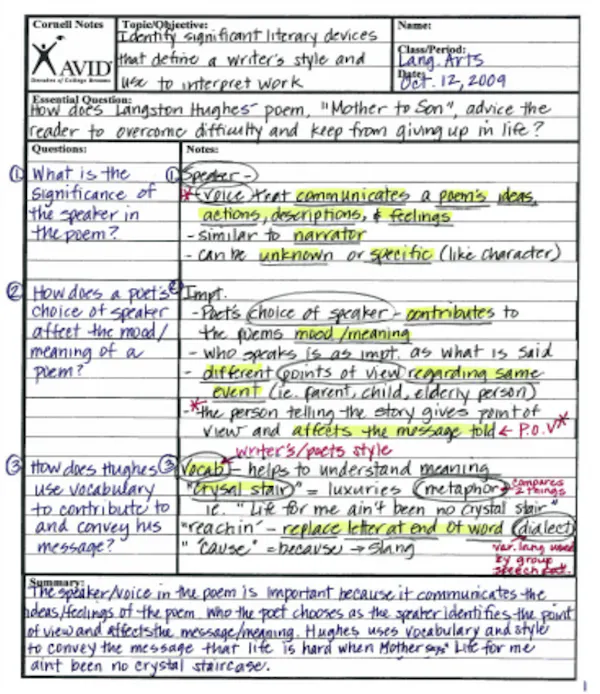 Cornell Notes
AVID
Decades of College Dreams
Topic/Objective:
Identify significant literary devices
that define a writer's style and
use to interpret work
Name:
Class/Period:
Lang. Arts
Date:
Oct. 12, 2009
Essential Question:
How does Langston Hughes' poem, "Mother to Son", advice the
reader to overcome difficulty and keep from giving up in life?
Questions:
① What is the
significance of
the speaker in
the poem?
② How does a poet's
choice of speaker
affect the mood/
meaning of a
poem?
③ How does Hughes
use vocabulary
to contribute to
and convey his
message?
Notes:
① Speaker -
* voice that communicates a poem's ideas,
actions, descriptions, & feelings
- similar to narrator
- can be unknown or specific (like character)
② Impt.
- Poet's choice of speaker - contributes to
the poems mood/meaning
- who speaks is as impt. as what is said
- different points of view regarding same
event (ie. parent, child, elderly person)
-* the person telling the story gives point of
view and affects the message told ← P.O.V*
writer's/poets style
③ Vocab - helps to understand meaning
"crysal stair" = luxuries metaphor → compares
2 things
ie. "Life for me ain't been no crystal stair"
"reachin" - replace letter at end of word dialect
" 'cause" = because → slang
var. lang used
by group
speech
Summary:
The speaker/voice in the poem is important because it communicates the
ideas/feelings of the poem. Who the poet chooses as the speaker identifies the point
of view and affects the message/meaning. Hughes uses vocabulary and style
to convey the message that life is hard when Mother says "Life for me
aint been no crystal staircase.
1